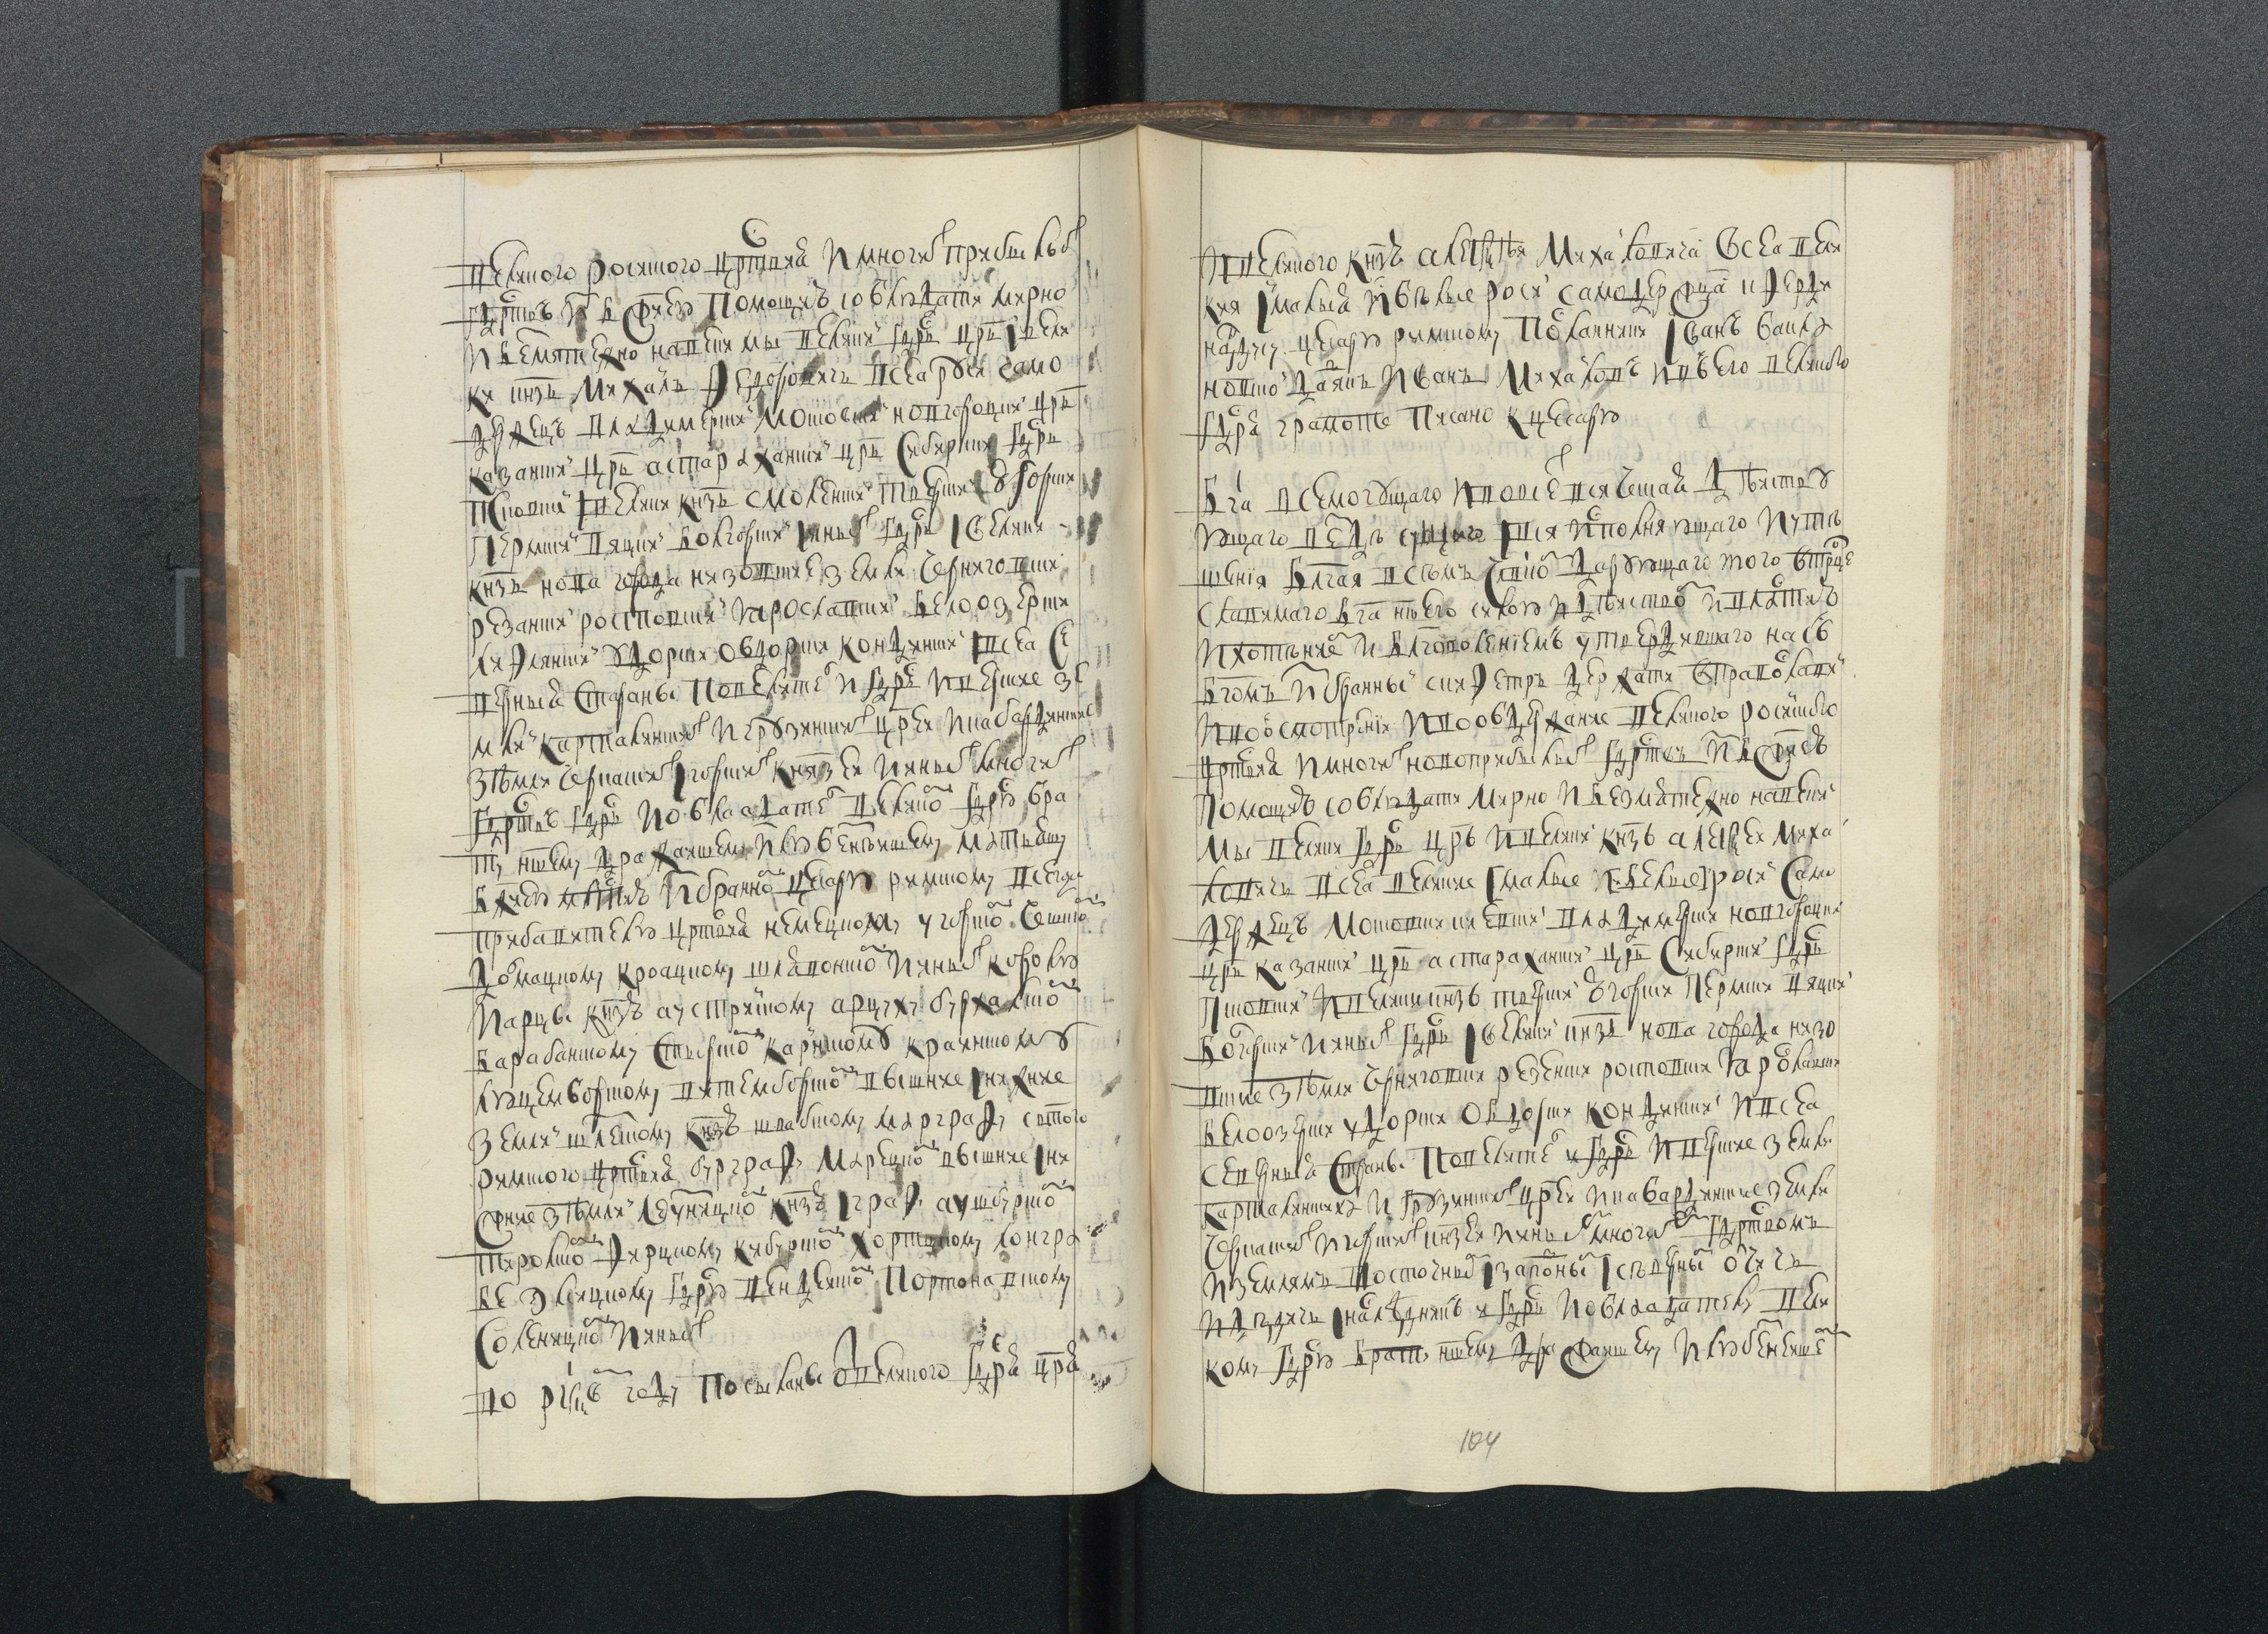 великого росиского црствиа и многих прибылых
гдрствъ и Бжиею помощию соблюдати мирно
и безмятежно навеки мы великий гдрь црь и вели
ки кнзь Михаилъ Федоровичь всеа русии само
держецъ владимерский московский новгороцкий црь
казанский црь астараханский црь сибирский гдрь
псковский и великий кнзь смоленский тверский югорский
пермский вяцкий болгорский и иных гдрь и великий
кнзь нова города низовские земли черниговский
резанский ростовский ярославский белоозерский
лифлянский удорский обдорский кондинский и всеа се
верныя страны повелитель и гдрь иверские зе
мли карталинских и грузинских црей и кабардинские
земли черкаских и горских князей и иных многих
гдрствъ гдрь и облаадатель великому гдрю бра
ту ншему дражайшему и любительнейшему
Бжиею млстию избранному цесарю римскому всегда
прибавителю црствиа немецкому угорскому чешскому
долмацкому кроацкому шлавонскому и иных королю
и арцы кнзю аустрийскому арцуху бурхонскому
барабанскому стырскому карийскому краинскому
люцемборскому витемборскому вышние и нижние
земли шлеского кнзю швабскому марграфу сттого
римского црствиа бурграфу марецкому вышние и ни
жние земли лаузницкому кнзю и графу аушбурскому
тиролскому фирцкому кибурскому и хорицкому лонгра
бе элзацкому гдрю виндейскому портонавскому
соленицкому и иных
во году посыланы от великого гдря цря
и великого кнзя алексея михаиловича всеа вели
кия и малыя и белые росии самодержца и Ферди
нандусу цесарю римскому посланники Иванъ баикла
новской да дьякъ Иванъ Михаиловъ и въ его великого
гдря грамоте писано к цесарю
Бга всемогущаго и во всех всяческая действу
ющаго вездѣ сущаго и вся исполняющаго и утѣ
шения благая всѣмъ члвком дарующаго того в трце
славимаго бга ншего силою и действом и властию
и хотѣнием и благоволениемъ утвердившаго нас
бгомъ избранный скифетръ держати в православии
и во осмотрѣнии и во обдержание великого росиского
црствия и многих новоприбылых гдрствъ и Бжиею
помощию соблюдати мирно и безмятежно навеки
мы великий гдрь црь и великий кнзь алексей миха
ловичь всеа великие и малые и белые росии само
держецъ московский киевский владимерский новгороцкий
црь казанский црь астараханский црь сибирский гдрь
псковский и великий кнзь тверский югорский пермский вяцкий
болгорский и иных гдрь и великий кнзь нова города низо
вские земли черниговский резенский ростовский ярославский
белоозерский удорский обдорский кондинский и всеа
северныя страны повелитель и гдрь иверские земли
карталинскихъ и грузинских црей и кабардинские земли
черкаских и горских кнзей и иным многим гдрствомъ
и землямъ восточным и западным и сѣверным отчичь
и дедичь и наследникъ и гдрь и обладатель вели
кому гдрю брату ншему дражайшему и любительнейшему
104